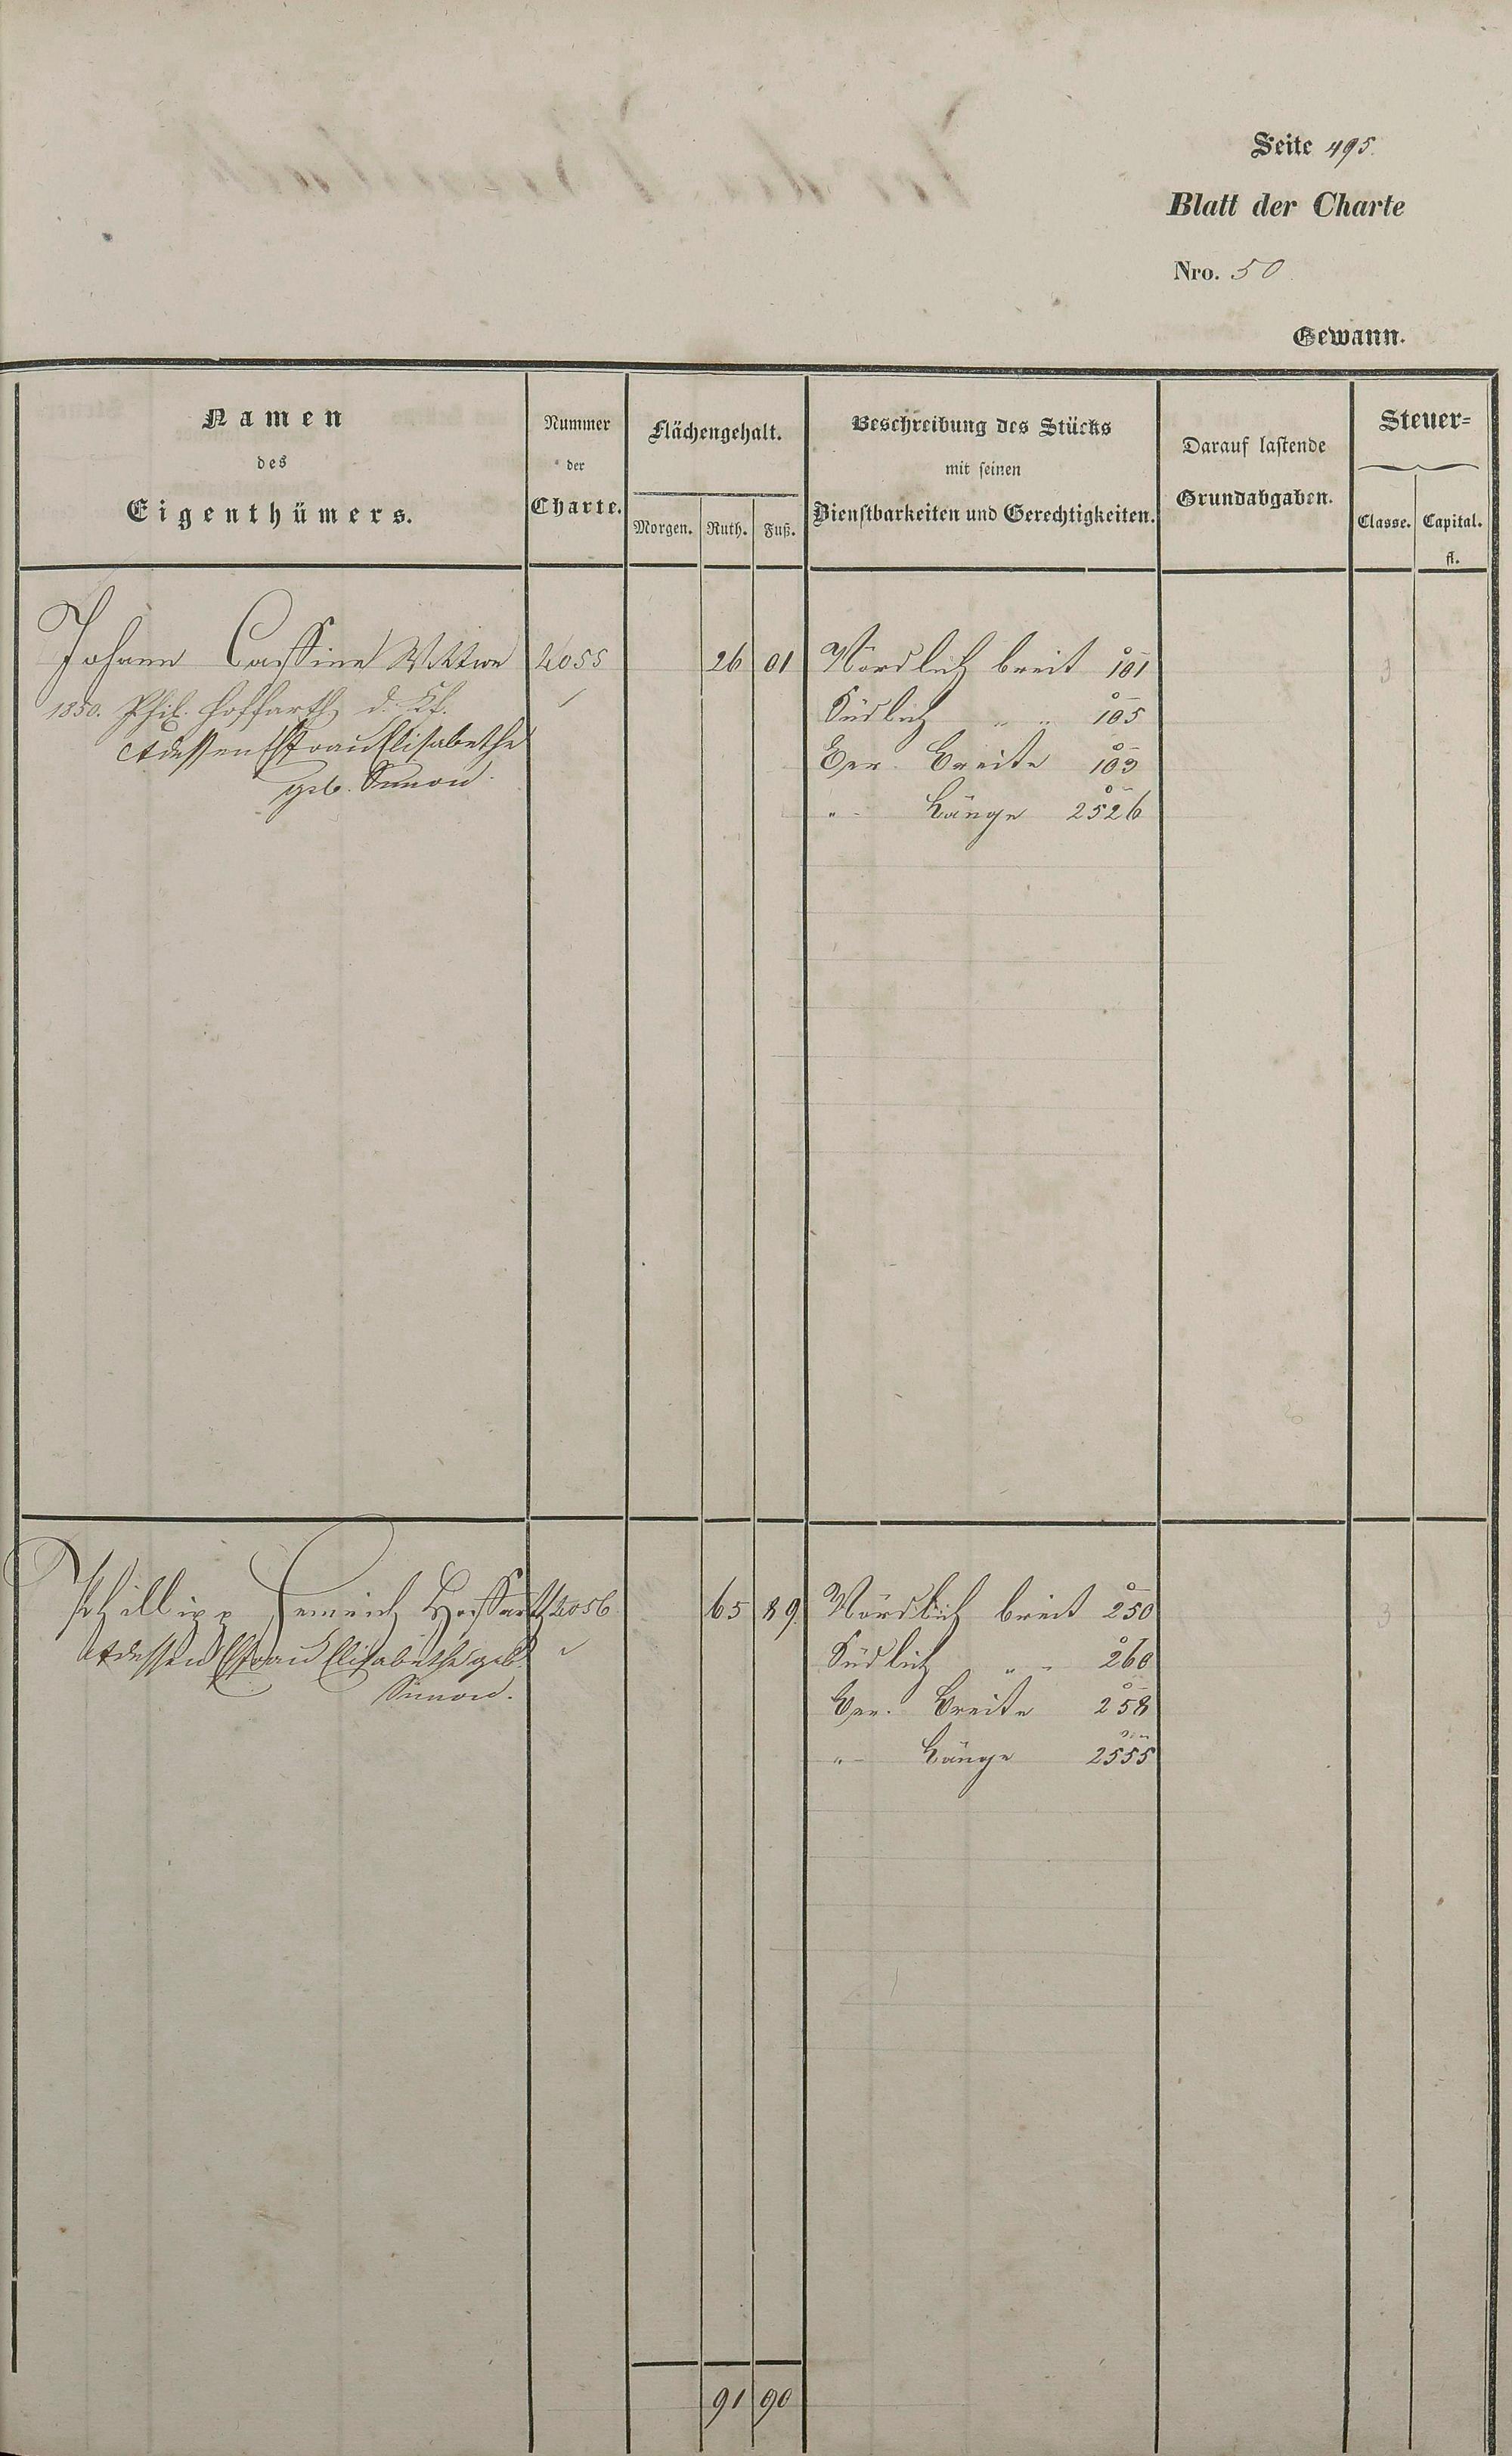 Seite 495.
Blatt der Charte
Nro. 50
Gewann.
Namen
des
Eigenthümers.
Nummer
der
Charte.
Flächengehalt.
Morgen. Ruth. Fuß.
Beschreibung des Stücks
mit seinen
Dienstbarkeiten und Gerechtigkeiten.
Darauf lastende
Grundabgaben.
Steuer-
Classe. Capital.
fl.
Johann Cassine Wittwe 2055 26 01 Nördlich breit 101
1850. Phil. Hoffarth d. Kf. Südlich " " 105
dessen Ehfrau Elisabethe Ver. Breite 103
geb. Simon. " Länge 2526
Phillipp Heinrich Hoffarth 2056 65 89 Nördlich breit 250
dessen Ehfrau Elisabethe geb. Südlich " " 260
Simon. Ver. Breite 258
" Länge 2555
91 90